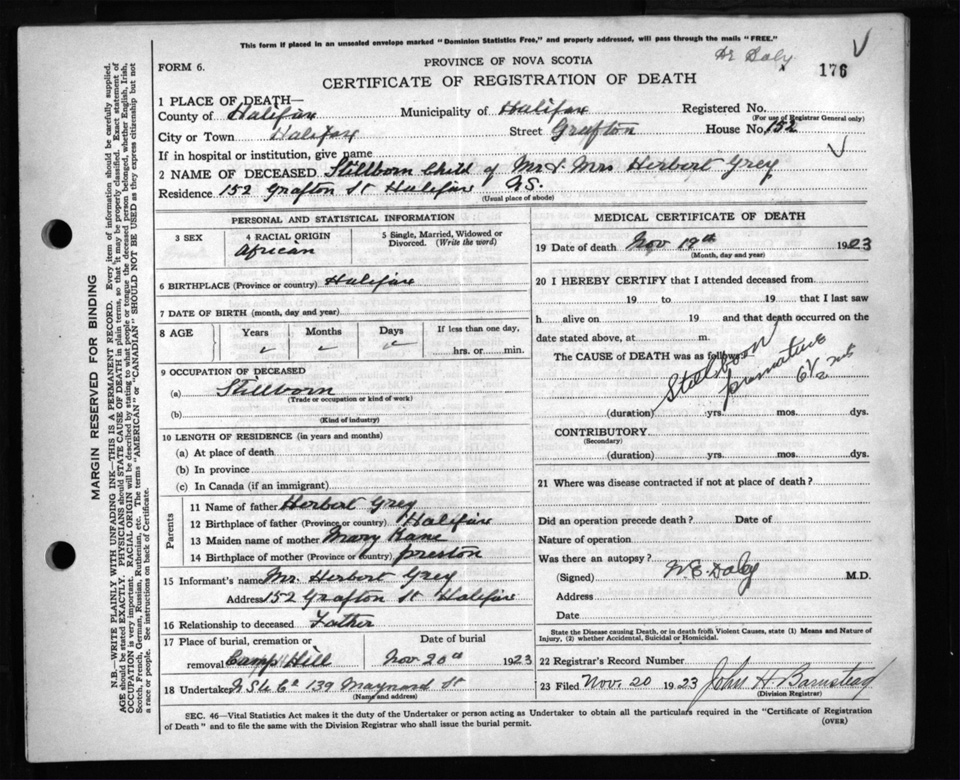 This form if placed in an unsealed envelope marked "Dominion Statistics Free," and properly addressed, will pass through the mails "FREE."
Dr Daly
FORM 6.
PROVINCE OF NOVA SCOTIA
176
CERTIFICATE OF REGISTRATION OF DEATH
1 PLACE OF DEATH—
County of Halifax Municipality of Halifax Registered No.
(For use of Registrar General only)
City or Town Halifax Street Grafton House No. 152
If in hospital or institution, give name
2 NAME OF DECEASED Stillborn Child of Mr & Mrs Herbert Grey
Residence 152 Grafton St Halifax N.S.
(Usual place of abode)
PERSONAL AND STATISTICAL INFORMATION
3 SEX 4 RACIAL ORIGIN 5 Single, Married, Widowed or Divorced. (Write the word)
African
6 BIRTHPLACE (Province or country) Halifax
7 DATE OF BIRTH (month, day and year)
8 AGE Years Months Days If less than one day,
hrs. or min.
9 OCCUPATION OF DECEASED
(a) Stillborn
(Trade or occupation or kind of work)
(b)
(Kind of industry)
10 LENGTH OF RESIDENCE (in years and months)
(a) At place of death
(b) In province
(c) In Canada (if an immigrant)
Parents
11 Name of father Herbert Grey
12 Birthplace of father (Province or country) Halifax
13 Maiden name of mother Mary Kane
14 Birthplace of mother (Province or country) Preston
15 Informant's name Mr. Herbert Grey
Address 152 Grafton St Halifax
16 Relationship to deceased Father
17 Place of burial, cremation or Date of burial
removal Camp Hill Nov 20th 1923
18 Undertaker 139 Maynard St
(Name and address)
MEDICAL CERTIFICATE OF DEATH
19 Date of death Nov 19th 1923
(Month, day and year)
20 I HEREBY CERTIFY that I attended deceased from
19 to 19 that I last saw
h alive on 19 and that death occurred on the
date stated above, at m.
The CAUSE of DEATH was as follows:
Stillborn
premature
6½ mts
(duration) yrs. mos. dys.
CONTRIBUTORY
(Secondary)
(duration) yrs. mos. dys.
21 Where was disease contracted if not at place of death?
Did an operation precede death? Date of
Nature of operation
Was there an autopsy?
(Signed) W.E. Daly M.D.
Address
Date
State the Disease causing Death, or in death from Violent Causes, state (1) Means and Nature of
Injury, (2) whether Accidental, Suicidal or Homicidal.
22 Registrar's Record Number
23 Filed Nov. 20 1923 John H Barnstead
(Division Registrar)
SEC. 46—Vital Statistics Act makes it the duty of the Undertaker or person acting as Undertaker to obtain all the particulars required in the "Certificate of Registration
of Death" and to file the same with the Division Registrar who shall issue the burial permit.
(OVER)
MARGIN RESERVED FOR BINDING
N.B.—WRITE PLAINLY WITH UNFADING INK—THIS IS A PERMANENT RECORD. Every item of information should be carefully supplied.
AGE should be stated EXACTLY. PHYSICIANS should STATE CAUSE OF DEATH in plain terms, so that it may be properly classified. Exact statement of
OCCUPATION is very important. RACIAL ORIGIN will be described by stating to what people or tongue the deceased person belonged, whether English, Irish,
Scotch, French, German, Russian, Ruthenian, etc. The terms "AMERICAN" or "CANADIAN" SHOULD NOT BE USED as they express citizenship but not
a race or people. See instructions on back of Certificate.